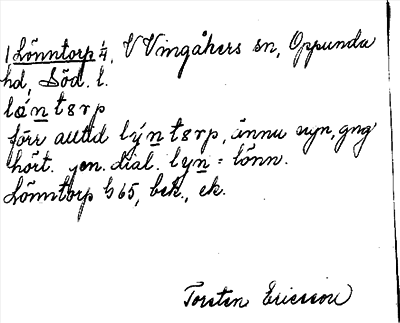 1 Lönntorp 1/4, V Vingåkers sn, Oppunda
hd, Söd. l.
lö́ntsrp
förr alltid lýntsrp, ännu nyn, gng
hört. gen. dial. lyn = lönn.
Lönntorp G 65, bek., ek.
Torsten Ericsson